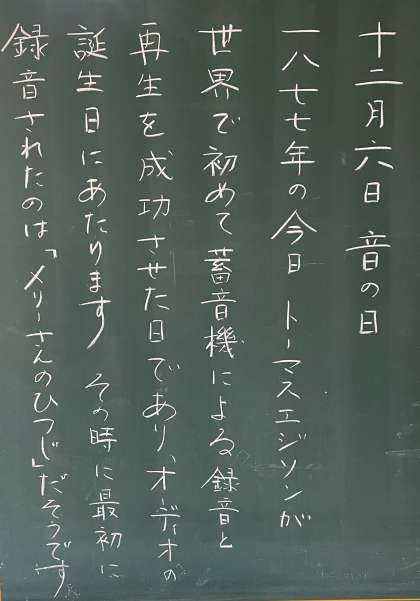 十二月六日 音の日
一八七七年の今日 トーマスエジソンが
世界で初めて蓄音機による録音と
再生を成功させた日であり、オーディオの
誕生日にあたります その時に最初に
録音されたのは「メリーさんのひつじ」だそうです